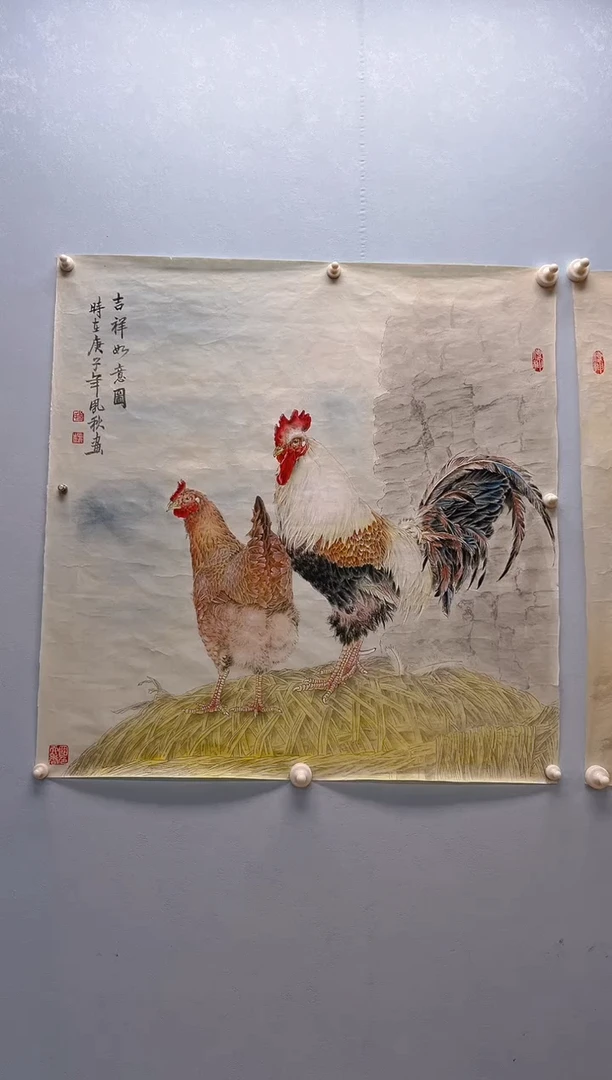 吉祥如意圖
時在庚子年凤秋畫